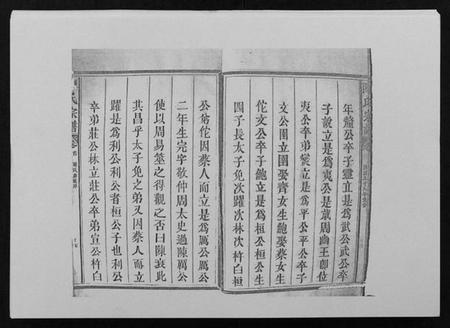 年釐公卒子靈立是爲武公武公卒
子說立是爲夷公是歲周幽王卽位
夷公卒弟燮立是爲平公平公卒子
文公圉立圉娶齊女生鮑娶蔡女生
佗文公卒子鮑立是爲桓公桓公生
四子長太子免次躍次林次杵臼桓
公弟佗因蔡人而立是爲厲公厲公
二年生完字敬仲周太史過陳厲公
使以周易筮之得觀之否曰陳衰此
其昌乎太子免之弟又因蔡人而立
躍是爲利公利公者桓公子也利公
卒弟莊公林立莊公卒弟宣公杵臼